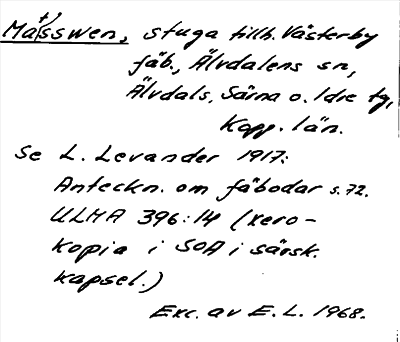 Mátsswen, stuga tillh. Västerby
fäb., Älvdalens sn,
Älvdals, Särna o. Idre tg,
Kopp. län.
Se L. Levander 1917:
Anteckn. om fäbodar s. 72.
ULMA 396:14 (xero-
kopia i SOA i särsk.
kapsel.)
Exc. av E. L. 1968.